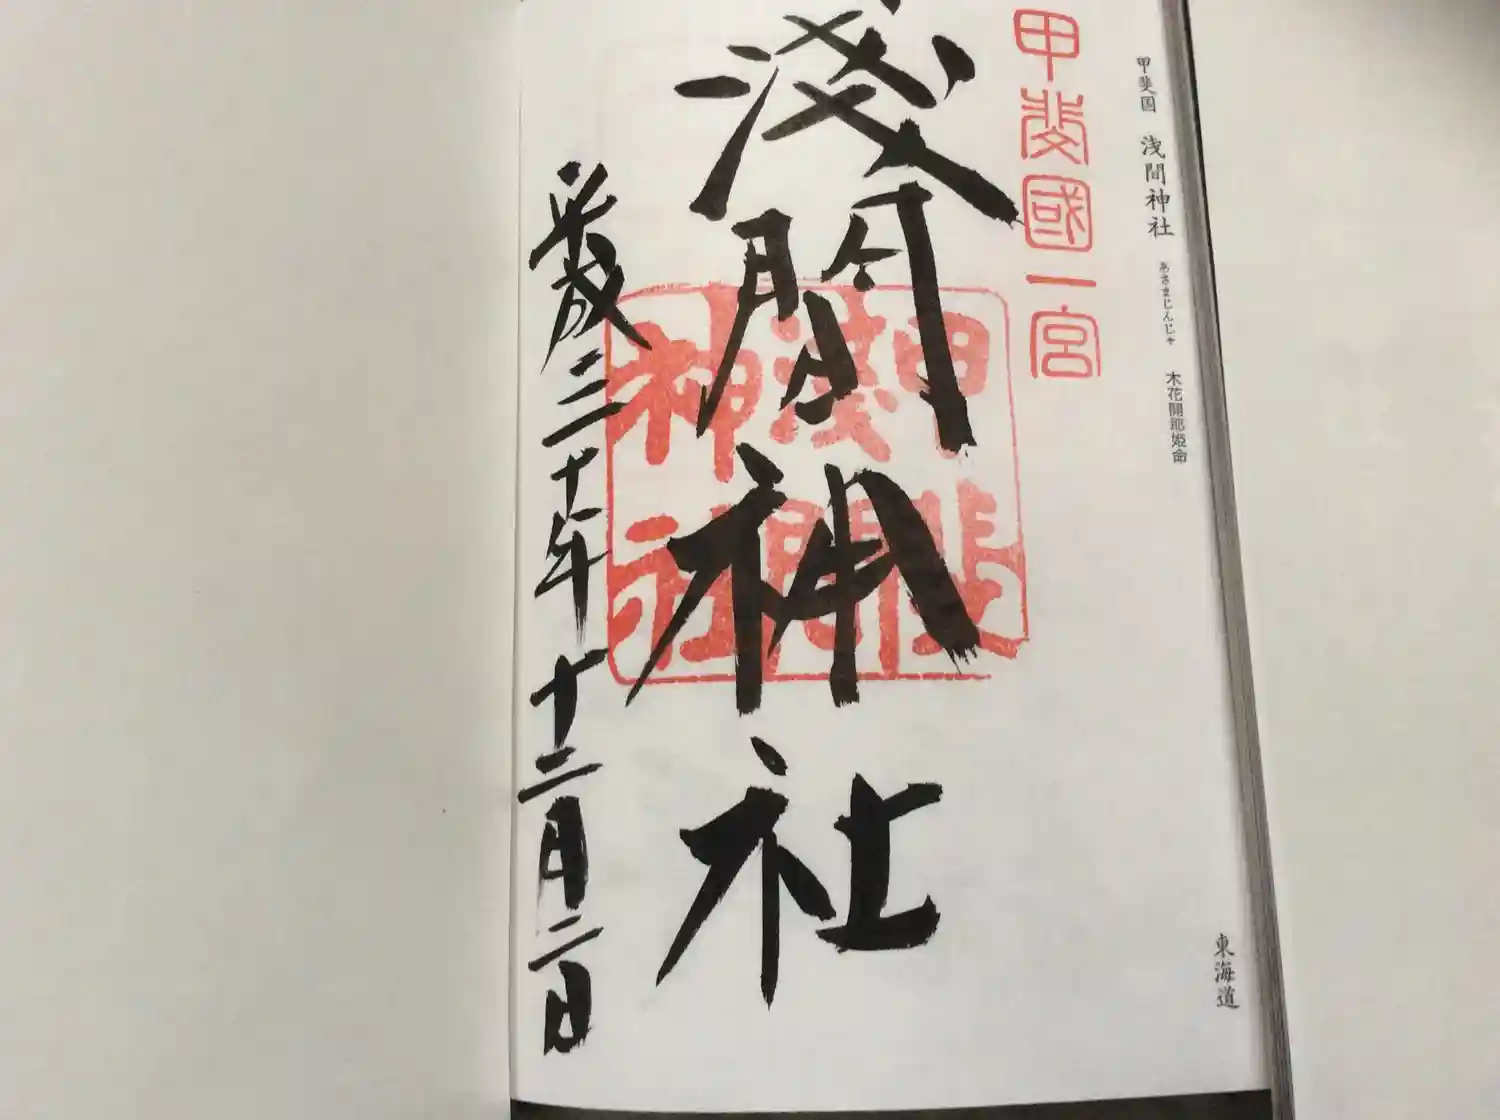 甲斐国 浅間神社 あさまじんじゃ 木花開耶姫命
東海道
甲斐國一宮
淺間神社
甲斐
淺間
神社
平成三十年十二月二日